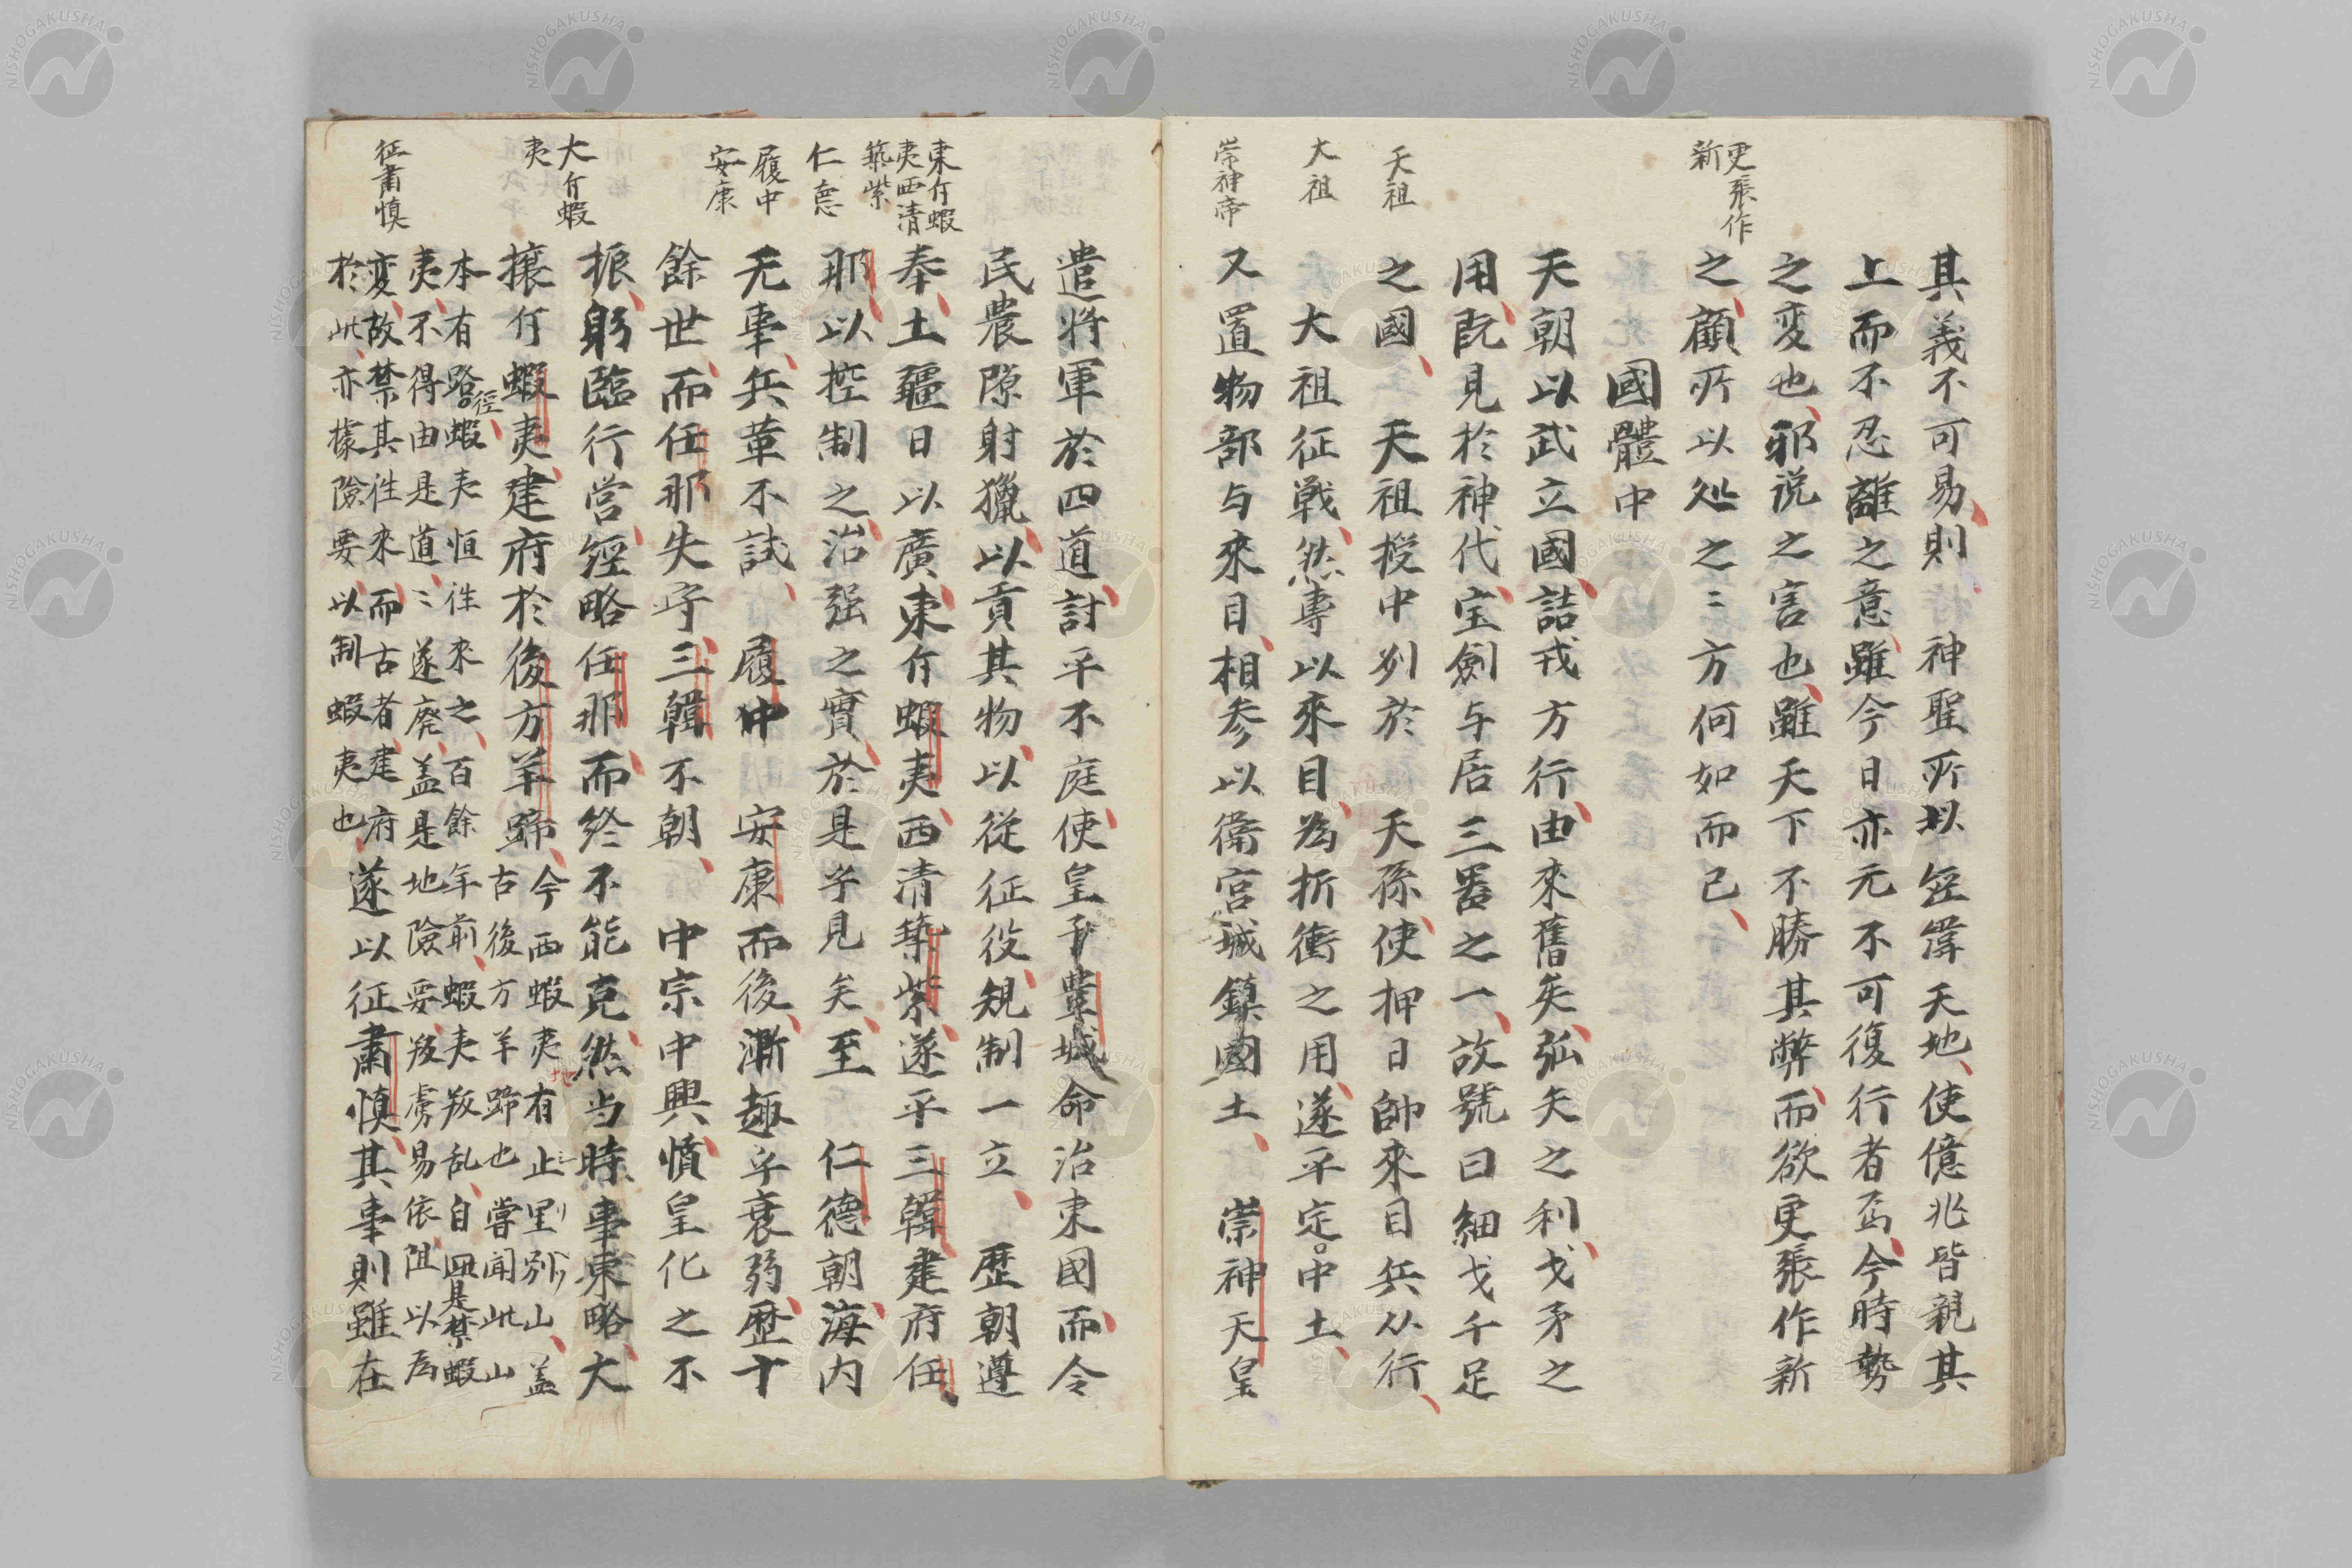 其義不可易則　神聖所以經緯天地使億兆皆親其
上而不忍離之意雖今日亦元不可復行者焉今時勢
之変也邪説之害也雖天下不勝其弊而欲更張作新
之顧所以処之〻方何如而已
更張作
新
國體中
天朝以武立國詰戎方行由來舊矣弧矢之利戈矛之
用既見於神代宝劍与居三器之一故號曰細戈千足
之國　天祖授中州於　天孫使押日帥來目兵从行
天祖
大祖征戦然専以來目為折衝之用遂平定中土
大祖
又置物部与來目相参以衛宮城鎮國土　崇神天皇
崇神帝
遣将軍於四道討平不庭使皇子豊城命治東國而令
民農隙射獵以貢其物以從征役規制一立　歴朝遵
奉土疆日以廣東斥蝦夷西清築紫遂平三韓建府任
東斥蝦
夷西清
築紫
那以控制之治强之實於是乎見矣至　仁德朝海内
仁悳
无事兵革不試　履中　安康而後漸趣乎衰弱歴十
履中
安康
餘世而任那失守三韓不朝　中宗中興憤皇化之不
振躬臨行営經略任那而終不能克然当時事東略大
大斥蝦
夷
攘斥蝦夷建府於後方羊蹄今西蝦夷地有止里別山蓋
古後方羊蹄也嘗聞此山
本有路徑蝦夷恒往來之百餘年前蝦夷叛乱自是禁蝦
夷不得由是道〻遂廃盖是地險要叛虜易依阻以為
変故禁其往來而古者建府
於此亦據險要以制蝦夷也遂以征肅慎其事則雖在
征肅慎
NISHOGAKUSHA